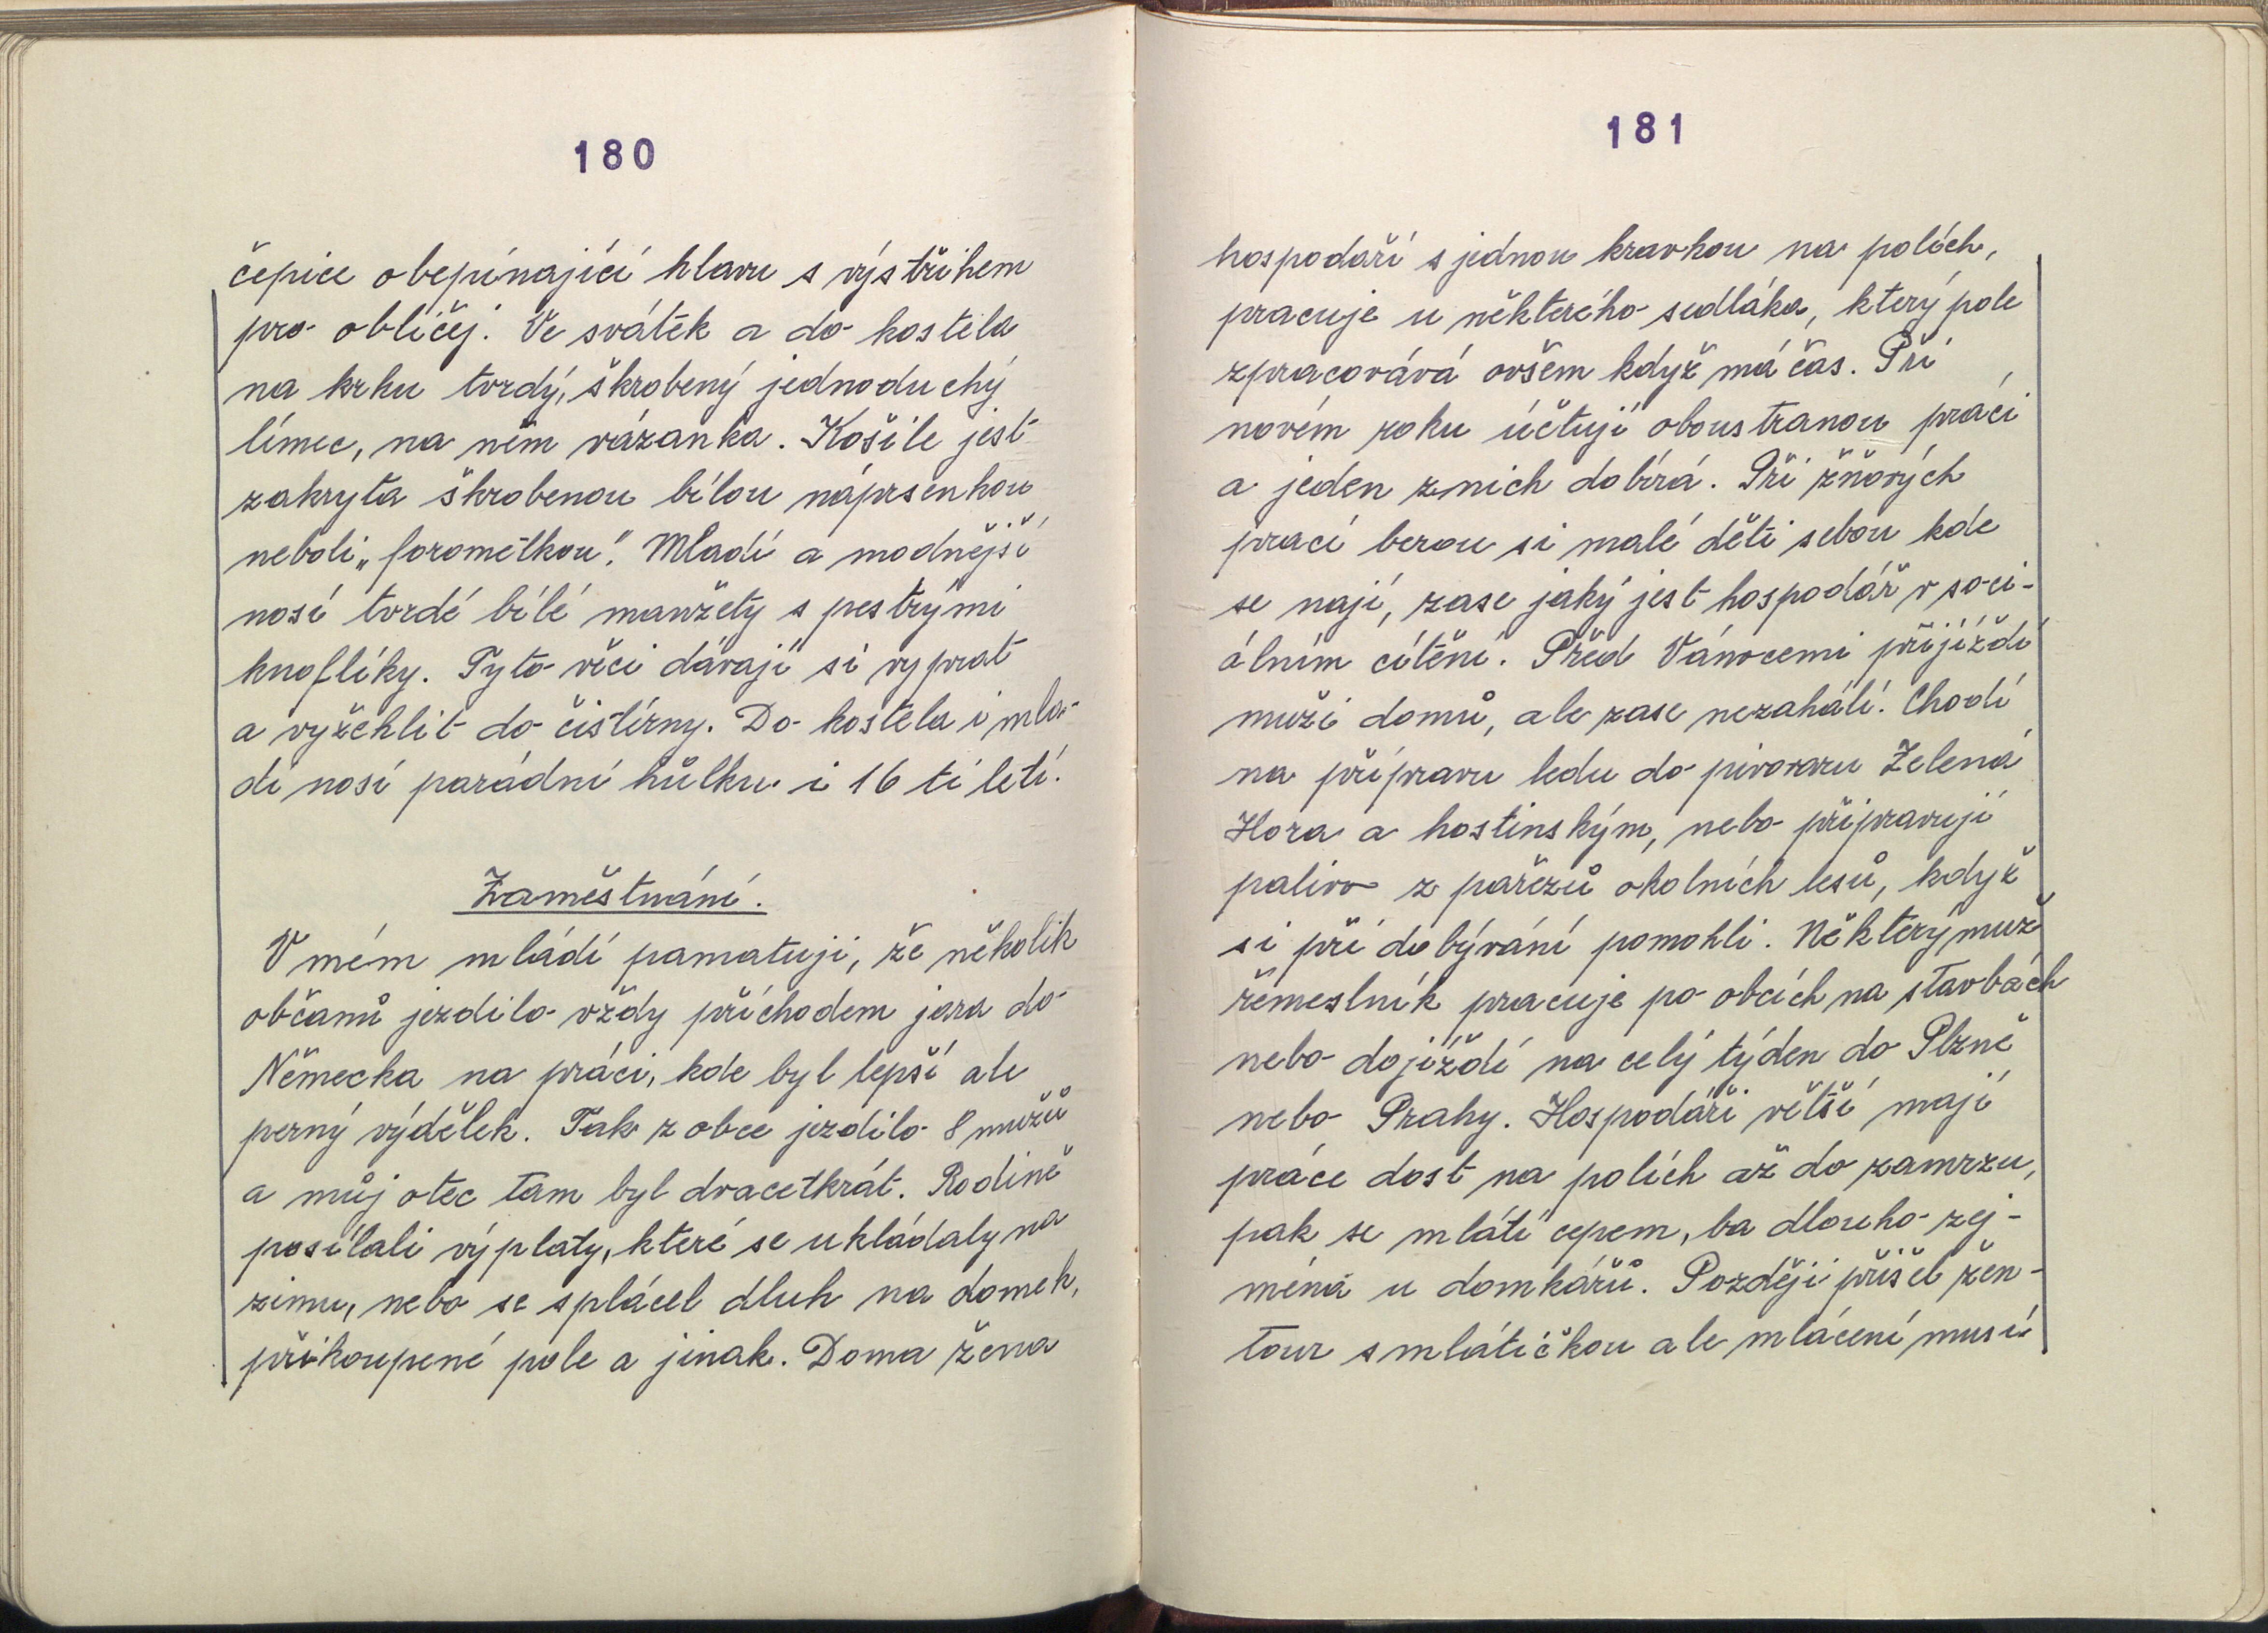 180
čepice obepínající hlavu s výstřihem
pro obličej. Ve svátek a do kostela
na krku tvrdý, škrobený jednoduchý
límec, na něm vázanka. Košile jest
zakryta škrobenou bílou náprsenkou
neboli „forometkou". Mladí a modnější
nosí tvrdé bílé manžety s pestrými
knoflíky. Tyto věci dávají si vyprat
a vyžehlit do čistírny. Do kostela i mla-
dí nosí parádní hůlku i 16 ti letí.
Zaměstnání.
V mém mládí pamatuji, že několik
občanů jezdilo vždy příchodem jara do
Německa na práci, kde byl lepší ale
perný výdělek. Tak z obce jezdilo 8 mužů
a můj otec tam byl dvacetkrát. Rodině
posílali výplaty, které se ukládaly na
zimu, nebo se splácel dluh na domek,
přikoupené pole a jinak. Doma žena
181
hospodaří s jednou kravkou na polích,
pracuje u některého sedláka, který pole
zpracovává ovšem když má čas. Při
novém roku účtují oboustranou práci
a jeden z nich dobírá. Při žňových
prací berou si malé děti sebou kde
se nají, zase jaký jest hospodář v soci-
álním cítění. Před Vánocemi přijíždí
muži domů, ale zase nezahálí. Chodí
na přípravu ledu do pivovaru Zelená
Hora a hostinským, nebo připravují
palivo z pařezů okolních lesů, když
si při dobývání pomohli. Některý muž
řemeslník pracuje po obcích na stavbách
nebo dojíždí na celý týden do Plzně
nebo Prahy. Hospodáři větší mají
práce dost na polích až do zamrzu,
pak se mlátí cepem, ba dlouho zej-
ména u domkářů. Později přišel žen-
tour s mlátičkou ale mlácení musí